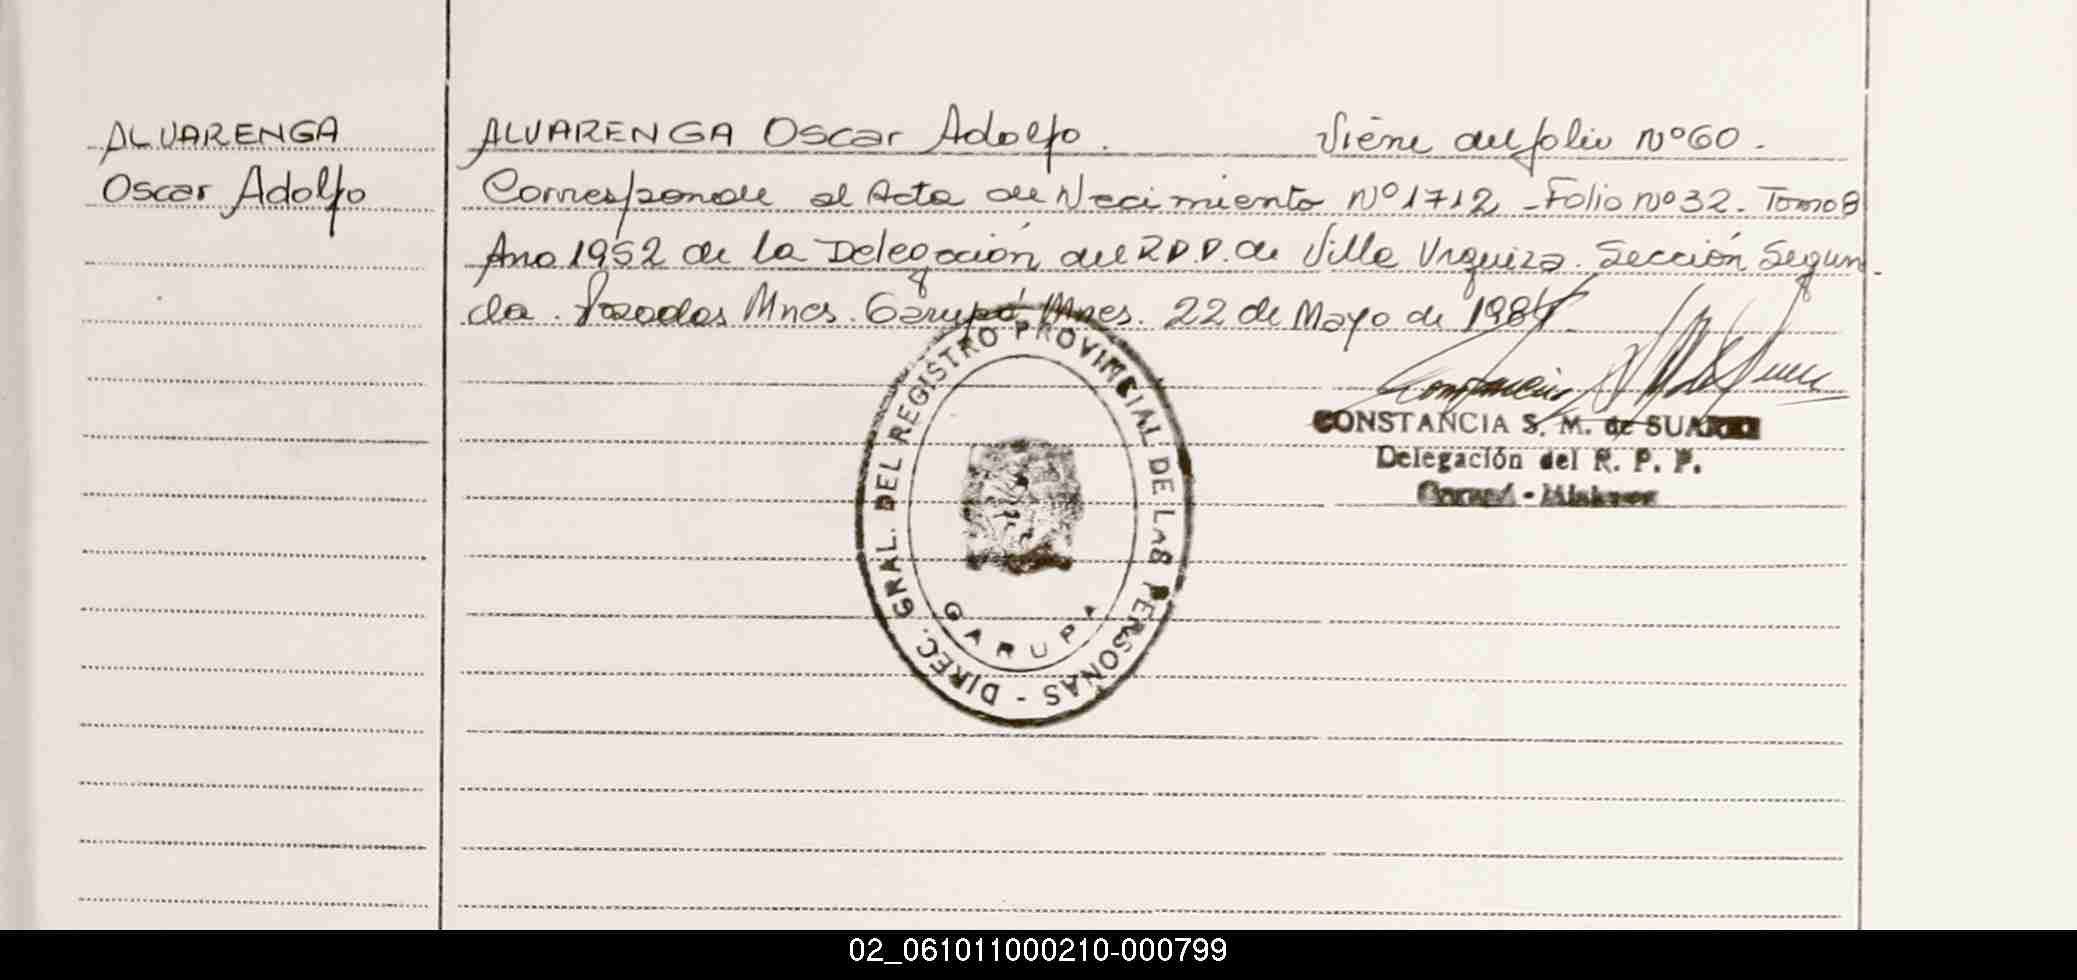 ALVARENGA
Oscar Adolfo
ALVARENGA Oscar Adolfo. Viene del folio Nº 60.
Corresponde al Acta de Nacimiento Nº 1712 - Folio nº 32. Tomo 8
Año 1952 de la Delegación del R.P.P. de Villa Urquiza. Sección Segun
da. Posadas Mnes. Garupá, Mnes. 22 de Mayo de 1984.
CONSTANCIA S. M. de SUAREZ
Delegación del R. P. P.
Garupá - Misiones
DIREC. GRAL. DEL REGISTRO PROVINCIAL DE LAS PERSONAS -
GARUPA
02_061011000210-000799